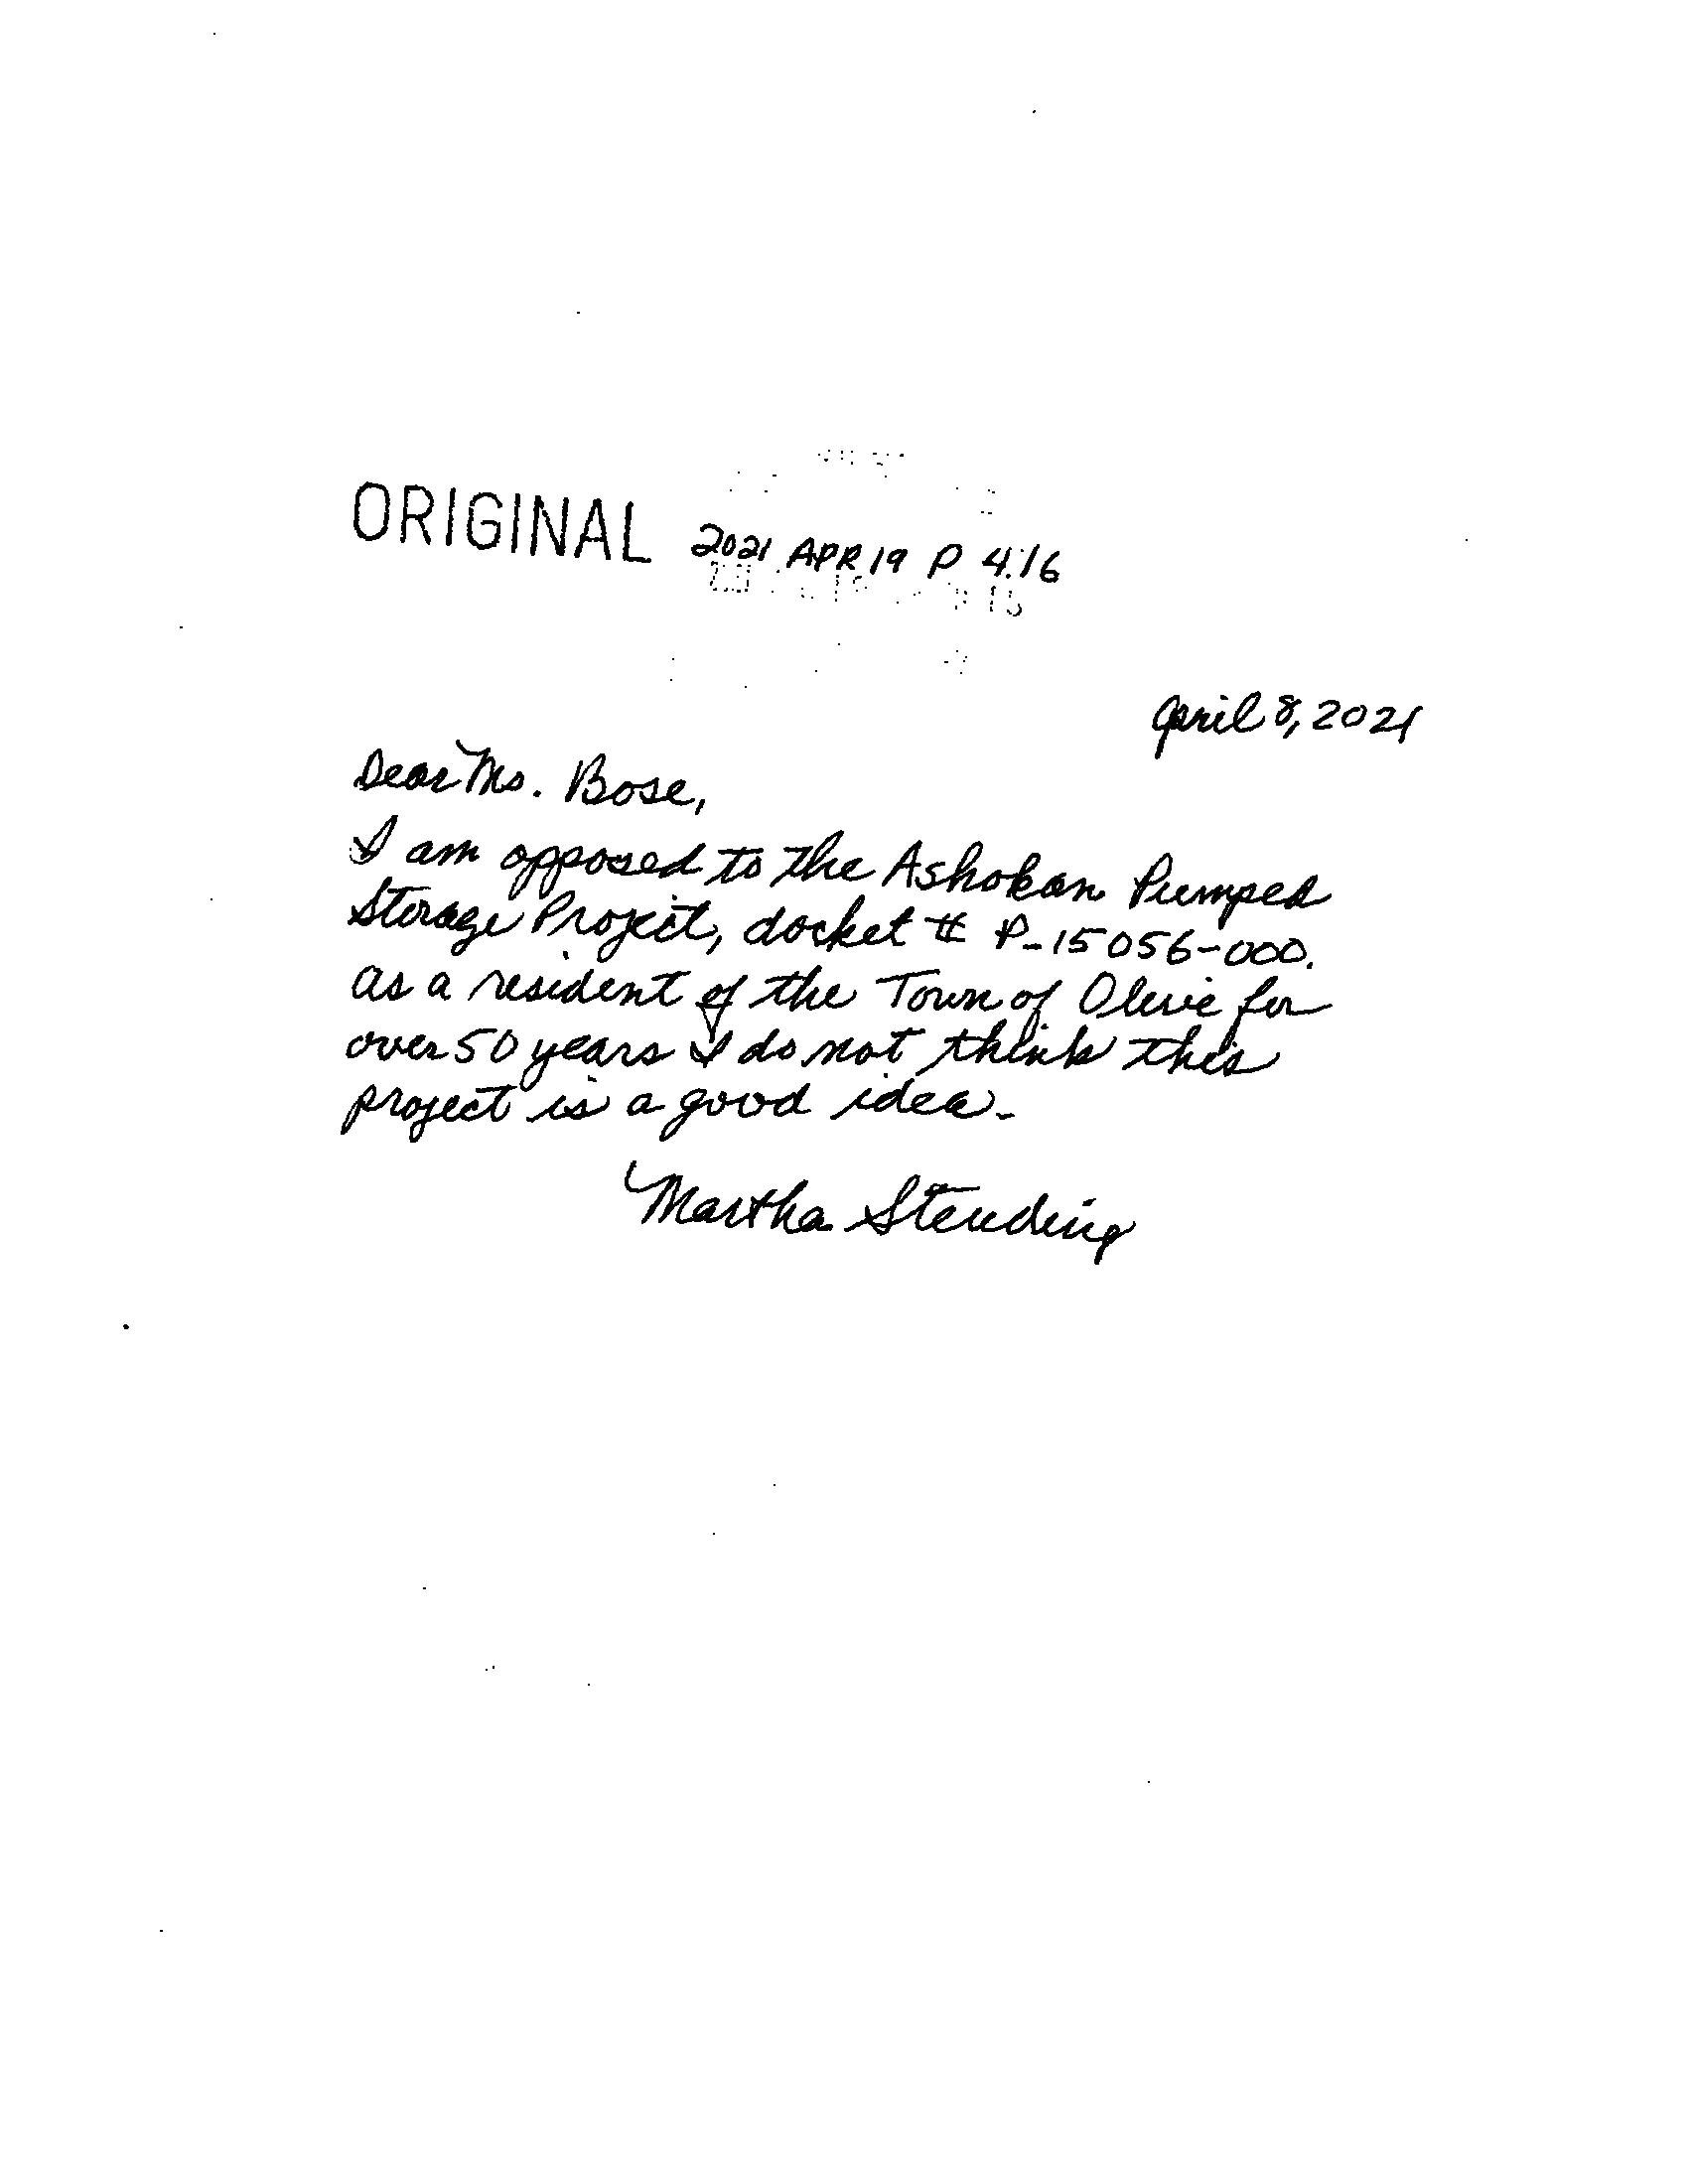 ORIGINAL
2021 APR 19 P 4:16
April 8, 2021
Dear Ms. Bose,
I am opposed to the Ashokan Pumped
Storage Project, docket # P-15056-000.
As a resident of the Town of Olive for
over 50 years I do not think this
project is a good idea.
Martha Steuding